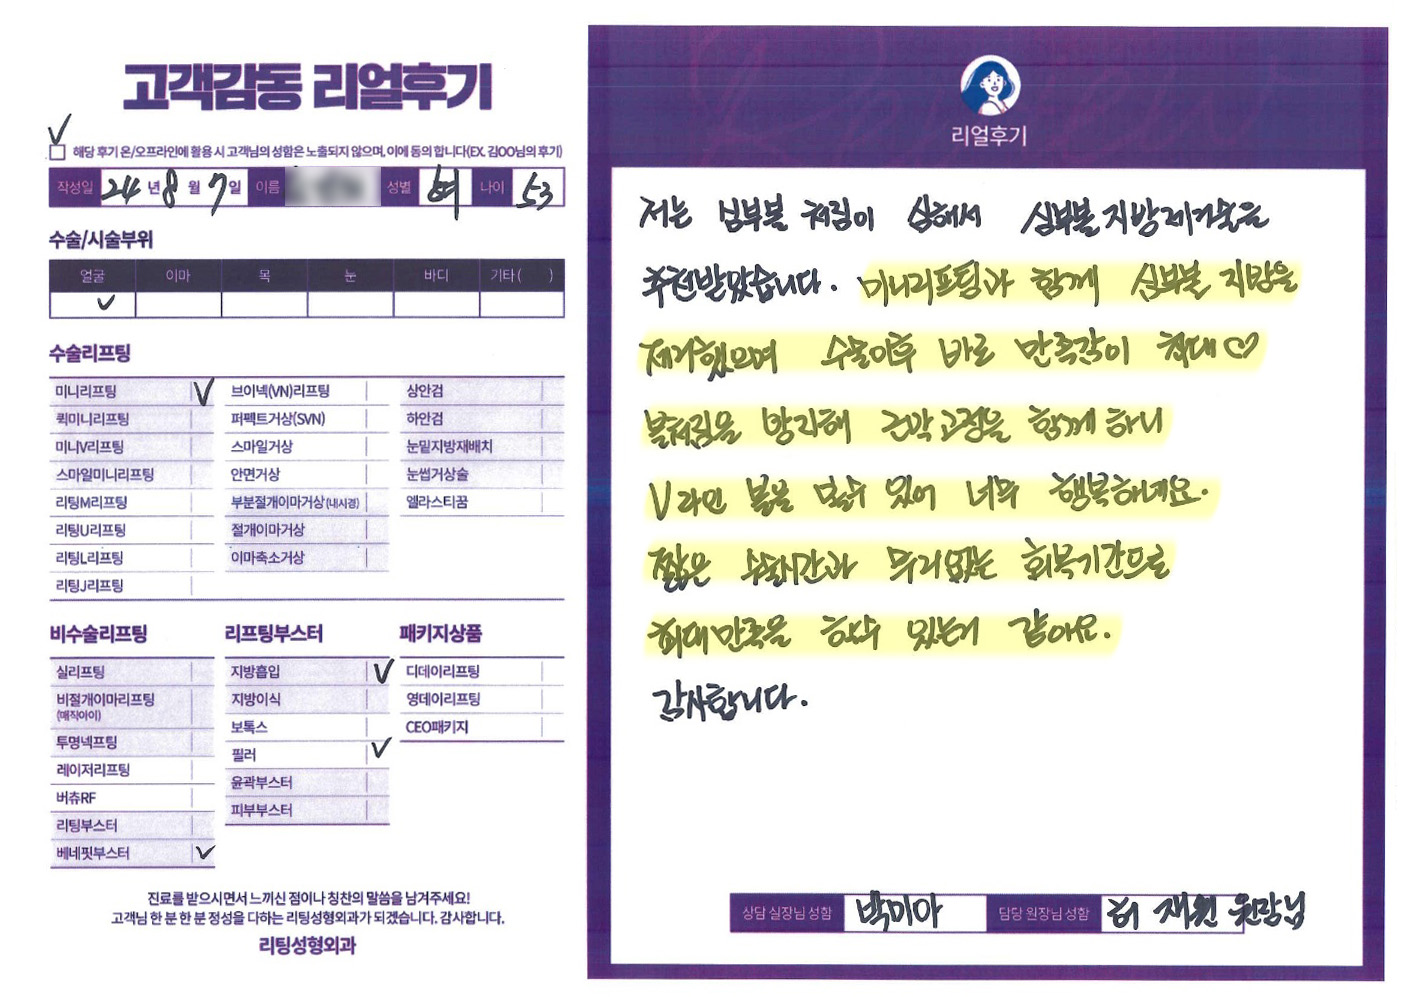 고객감동 리얼후기
해당 후기 온/오프라인에 활용 시 고객님의 성함은 노출되지 않으며, 이에 동의 합니다(EX. 김OO님의 후기)
작성일 24 년 8 월 7 일 이름 성별 여 나이 53
수술/시술부위
얼굴 이마 목 눈 바디 기타( )
수술리프팅
미니리프팅 브이넥(VN)리프팅 상안검
퀵미니리프팅 퍼펙트거상(SVN) 하안검
미니V리프팅 스마일거상 눈밑지방재배치
스마일미니리프팅 안면거상 눈썹거상술
리팅M리프팅 부분절개이마거상(내시경) 엘라스티꿈
리팅U리프팅 절개이마거상
리팅L리프팅 이마축소거상
리팅J리프팅
비수술리프팅 리프팅부스터 패키지상품
실리프팅 지방흡입 디데이리프팅
비절개이마리프팅 지방이식 영데이리프팅
(매직아이)
투명넥프팅 보톡스 CEO패키지
레이저리프팅 필러
버츄RF 윤곽부스터
리팅부스터 피부부스터
베네핏부스터
진료를 받으시면서 느끼신 점이나 칭찬의 말씀을 남겨주세요!
고객님 한 분 한 분 정성을 다하는 리팅성형외과가 되겠습니다. 감사합니다.
리팅성형외과
리얼후기
저는 심부볼 처짐이 심해서 심부볼지방제거술을
추천받았습니다. 미니리프팅과 함께 심부볼 지방을
제거했으며 수술이후 바로 만족감이 최대♡
볼처짐을 방지해 근막고정을 함께하니
V라인 볼을 볼수 있어 너무 행복하네요.
짧은 수술시간과 무리없는 회복기간으로
최대만족을 할수 있는거 같아요.
감사합니다.
상담 실장님 성함 박미아 담당 원장님 성함 허재원 원장님